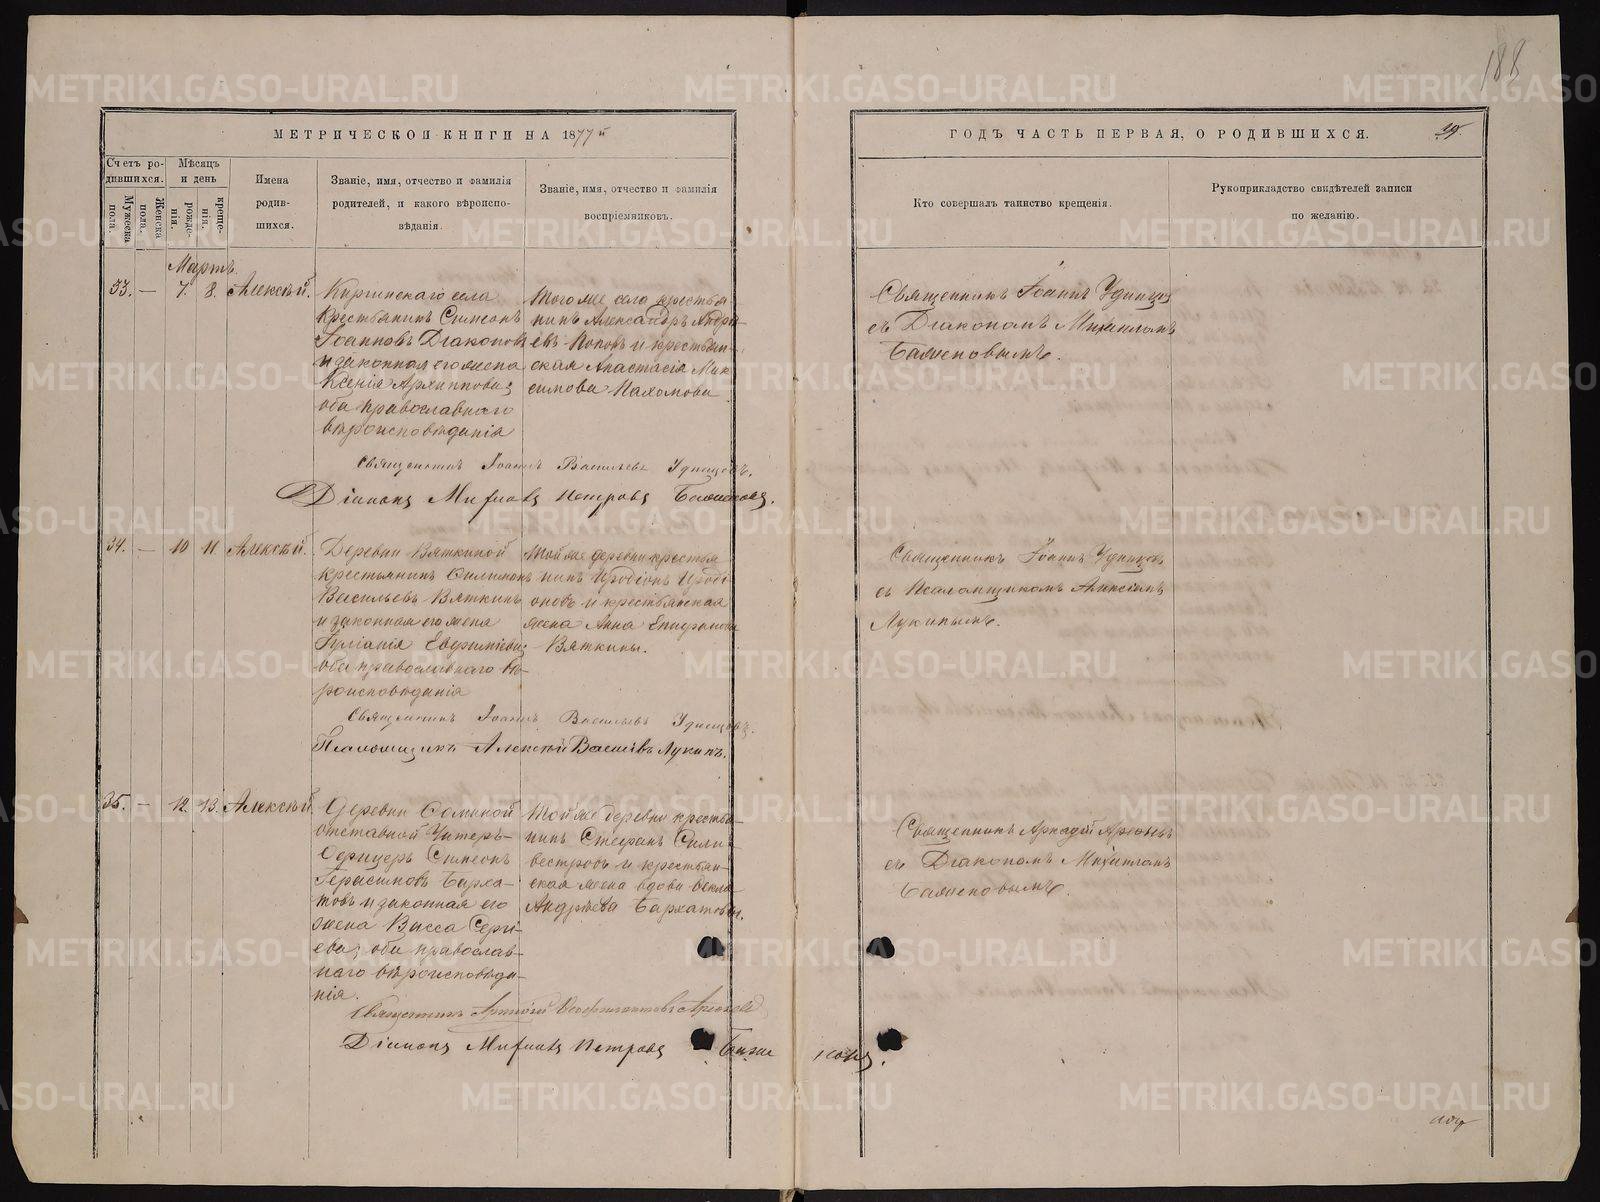 188
МЕТРИЧЕСКОЙ КНИГИ НА 1877й
ГОДЪ ЧАСТЬ ПЕРВАЯ, О РОДИВШИХСЯ.
Счетъ родившихся.
Мужеска пола.
Женска пола.
Мѣсяцъ и день
рожденія.
крещенія.
Имена
родив-
шихся.
Званіе, имя, отчество и фамилія
родителей, и какого вѣроиспо-
вѣданія.
Званіе, имя, отчество и фамилія
воспріемниковъ.
Кто совершалъ таинство крещенія.
Рукоприкладство свидѣтелей записи
по желанію.
Мартъ.
33. — 7. 8. Алексѣй.
Киргинскаго села
крестьянинъ Симеонъ
Іоанновъ Дьяконовъ
и законная его жена
Ксенія Архиппова;
оба православнаго
вѣроисповѣданія
Того же села крестья-
нинъ Александръ Андре-
евъ Поповъ и крестьян-
ская Анастасія Мак-
симова Пахомова
Священникъ Іоаннъ Удинцевъ
съ Діакономъ Михаиломъ
Баженовымъ.
Священникъ Іоаннъ Васильевъ Удинцевъ.
Діаконъ Михаилъ Петровъ Баженовъ.
34. — 10 11. Алексѣй.
Деревни Вяткиной
крестьянинъ Филимонъ
Васильевъ Вяткинъ
и законная его жена
Іуліанія Евфиміева;
оба православнаго вѣ-
роисповѣданія
Той же деревни крестья
нинъ Иродіонъ Ироді
оновъ и крестьянская
жена Анна Епифанова
Вяткины.
Священникъ Іоаннъ Удинцевъ
съ Псаломщикомъ Алексіемъ
Лукинымъ.
Священникъ Іоаннъ Васильевъ Удинцевъ.
Псаломщикъ Алексѣй Васильевъ Лукинъ.
35. — 12. 13. Алексѣй.
Деревни
отставной Унтеръ-
Офицеръ Симеонъ
Герасимовъ Барха-
товъ и законная его
жена Васса Сергі-
ева; оба православ-
наго вѣроисповѣда-
нія.
Той же деревни крестья
нинъ Стефанъ Сили-
вестровъ и крестьян-
ская жена вдова Ѳекла
Андрѣева Бархатовы.
Священникъ Аркадій
съ Діакономъ Михаиломъ
Баженовымъ.
Священникъ Аркадій
Діаконъ Михаилъ Петровъ Баженовъ.
METRIKI.GASO-URAL.RU